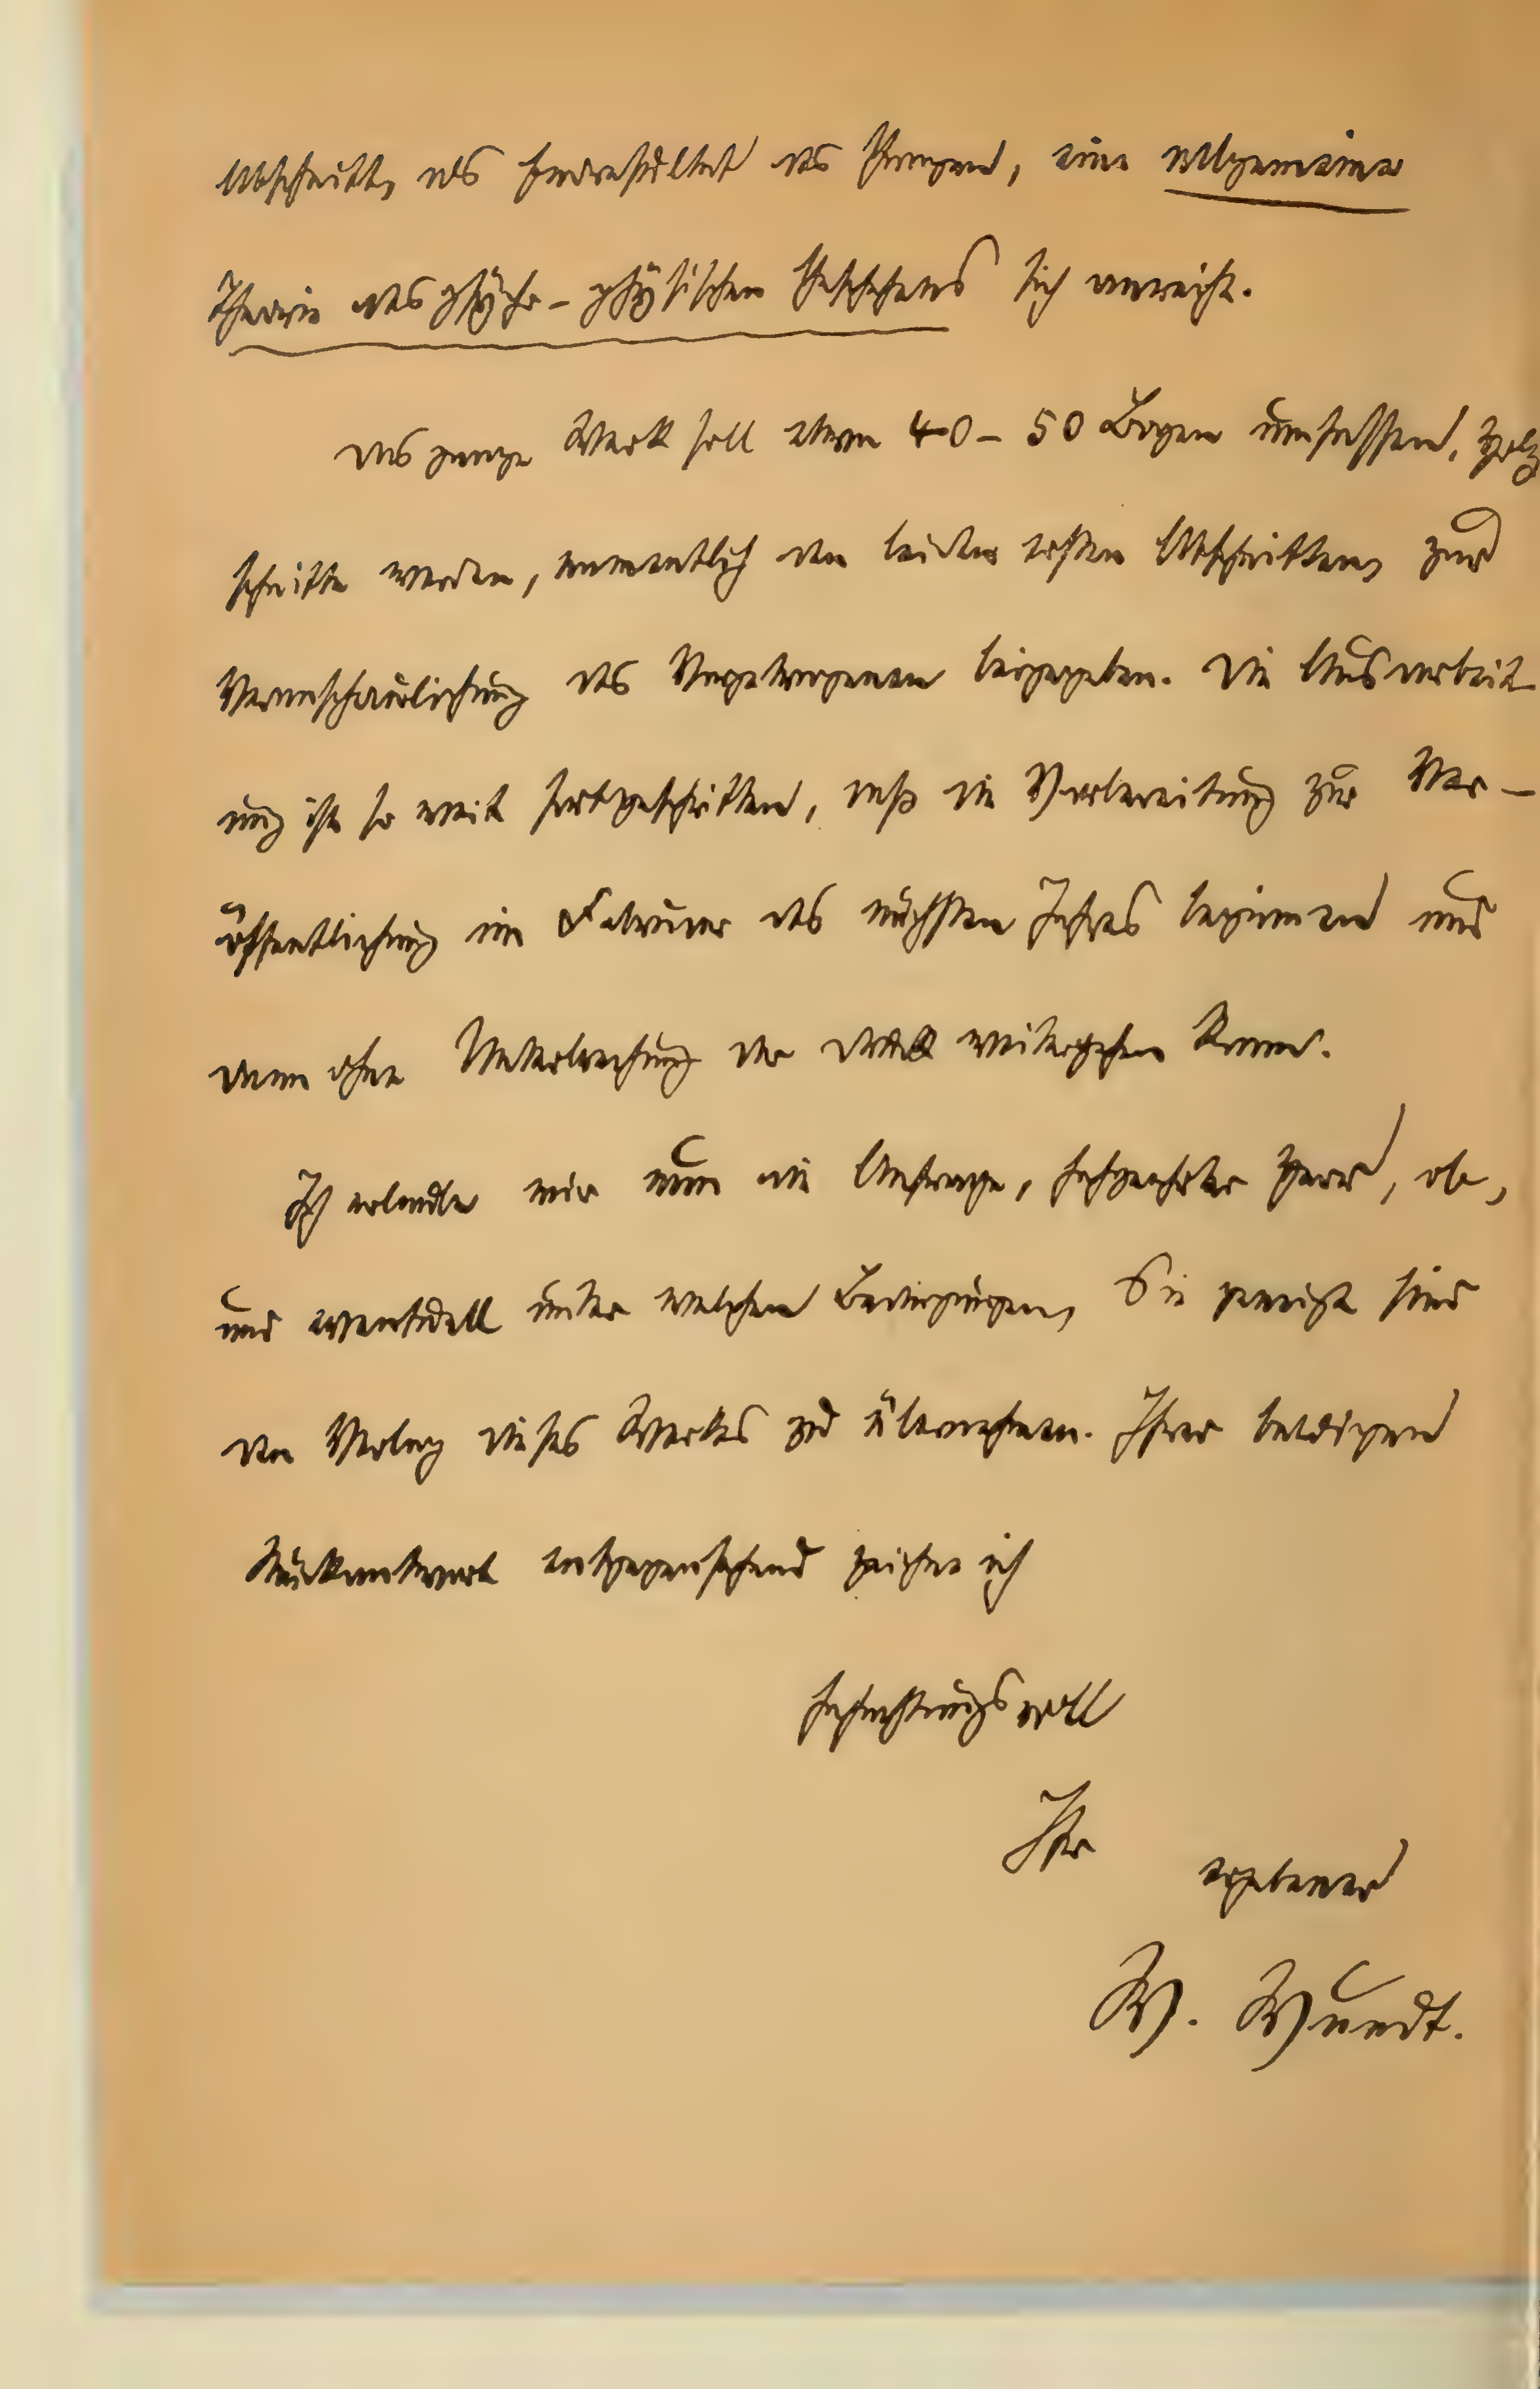 Abschnitt, als Endresultat des Ganzen, eine allgemeine
Theorie des psycho-physischen Geschehens sich anreiht.
Das ganze Werk soll etwa 40 – 50 Bogen umfassen, Holz
schnitte werden, namentlich den beiden ersten Abschnitten, zur
Veranschaulichung des Vorgetragenen beigegeben. Die Ausarbeit
ung ist so weit fortgeschritten, daß die Vorbereitung zur Ver-
öffentlichung im Februar des nächsten Jahres beginnen und
dann ohne Unterbrechung der Druck weitergehen kann.
Ich erlaube mir nun die Anfrage, hochgeehrter Herr, ob,
und eventuell unter welchen Bedingungen, Sie geneigt sind
den Verlag dieses Werkes zu übernehmen. Ihrer baldigen
Rückantwort entgegensehend zeichne ich
hochachtungsvoll
Ihr ergebener
W. Wundt.